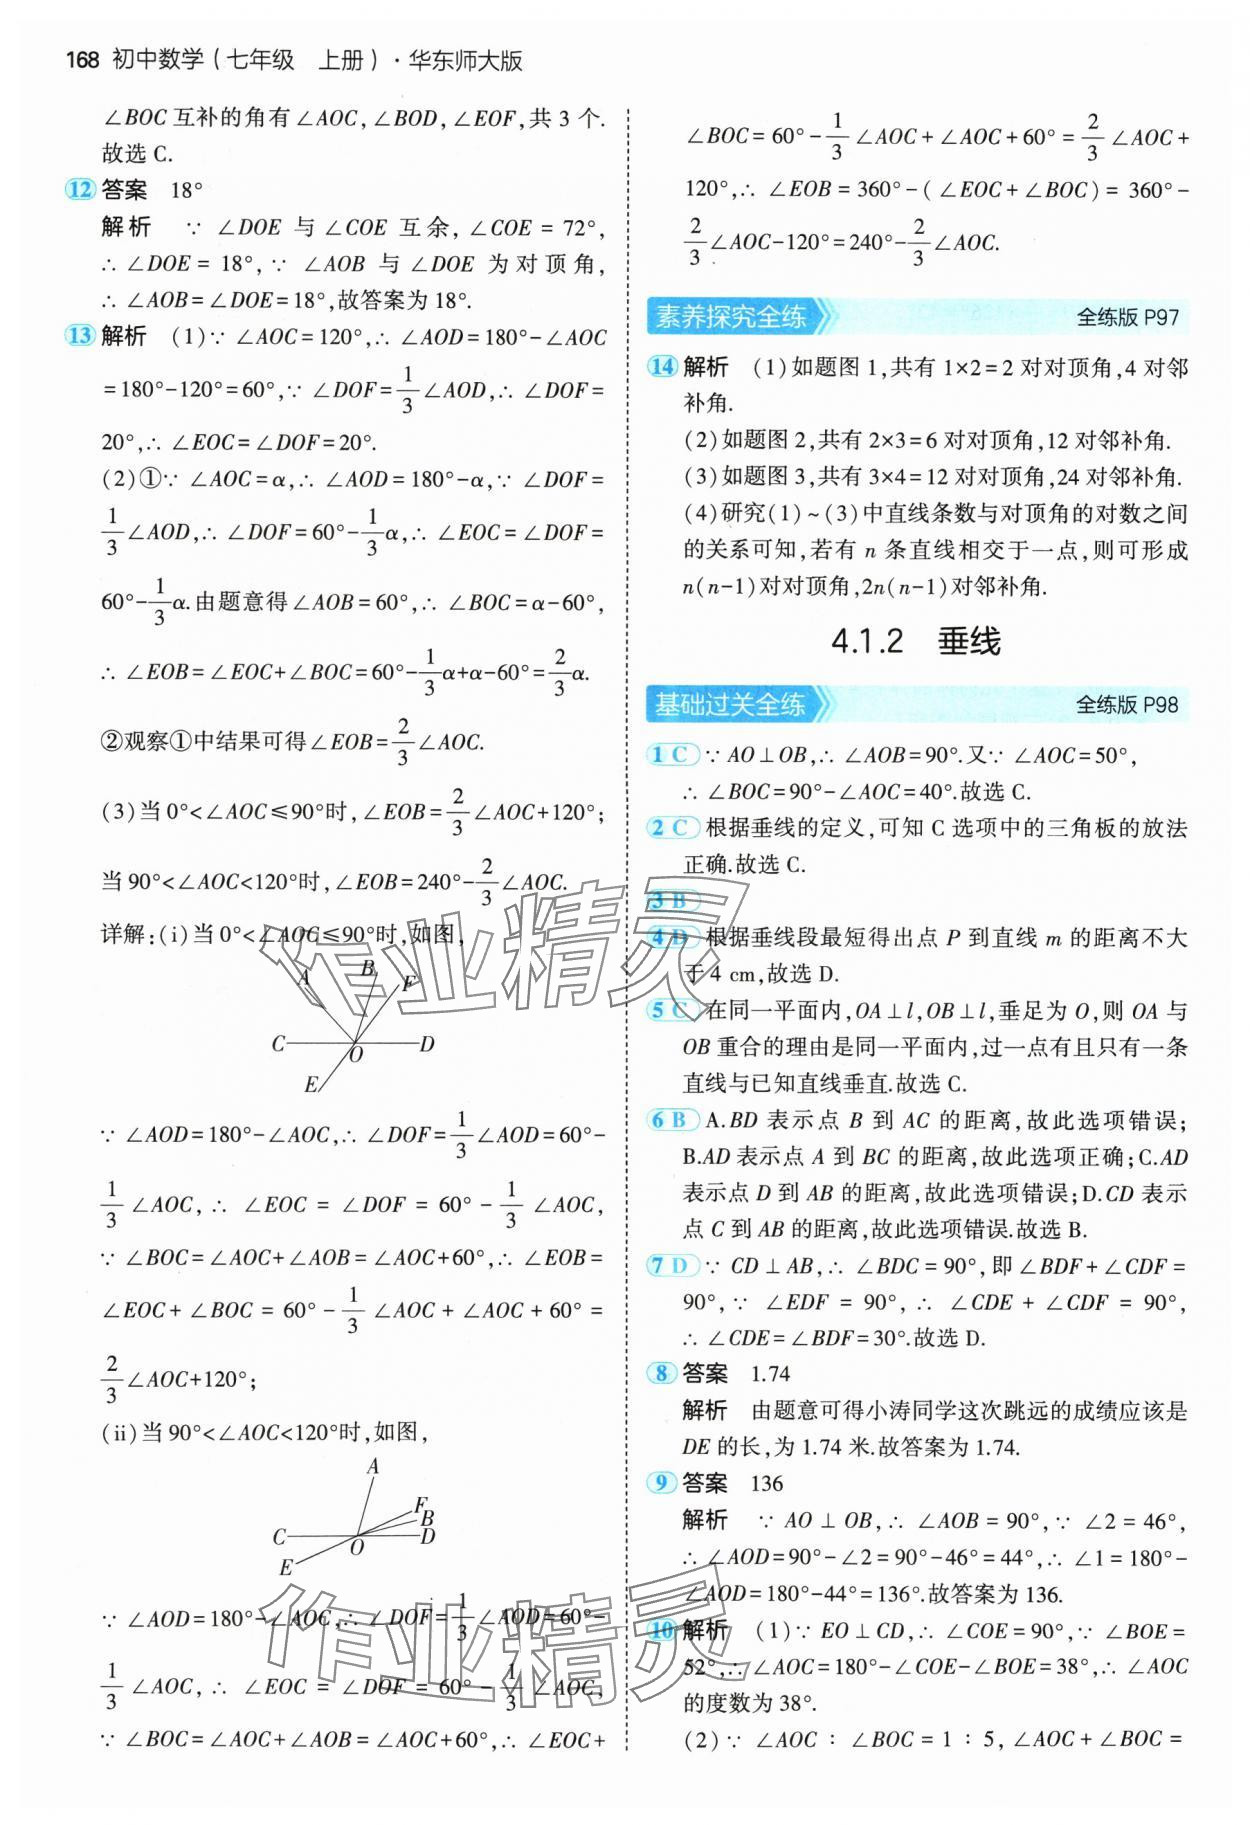 168 初中数学(七年级 上册)·华东师大版
∠BOC互补的角有∠AOC,∠BOD,∠EOF,共3个.
故选C.
12 答案 18°
解析 ∵ ∠DOE 与 ∠COE 互余, ∠COE = 72°,
∴ ∠DOE = 18°, ∵ ∠AOB 与 ∠DOE 为对顶角,
∴ ∠AOB=∠DOE=18°,故答案为18°.
13 解析 (1)∵ ∠AOC=120°,∴ ∠AOD=180°-∠AOC
=180°-120°=60°,∵ ∠DOF=1/3∠AOD,∴ ∠DOF=
20°,∴ ∠EOC=∠DOF=20°.
(2)①∵ ∠AOC=α,∴ ∠AOD=180°-α,∵ ∠DOF=
1/3∠AOD,∴ ∠DOF=60°-1/3α,∴ ∠EOC=∠DOF=
60°-1/3α.由题意得∠AOB=60°,∴ ∠BOC=α-60°,
∴ ∠EOB=∠EOC+∠BOC=60°-1/3α+α-60°=2/3α.
②观察①中结果可得∠EOB=2/3∠AOC.
(3)当0°<∠AOC≤90°时,∠EOB=2/3∠AOC+120°;
当90°<∠AOC<120°时,∠EOB=240°-2/3∠AOC.
详解:(i)当0°<∠AOC≤90°时,如图,
A B F
C O D
E
∵ ∠AOD=180°-∠AOC,∴ ∠DOF=1/3∠AOD=60°-
1/3∠AOC, ∴ ∠EOC = ∠DOF = 60° - 1/3∠AOC,
∵ ∠BOC=∠AOC+∠AOB=∠AOC+60°,∴ ∠EOB=
∠EOC+ ∠BOC = 60° - 1/3∠AOC + ∠AOC + 60° =
2/3∠AOC+120°;
(ii)当90°<∠AOC<120°时,如图,
A
F
B
C O D
E
∵ ∠AOD=180°-∠AOC,∴ ∠DOF=1/3∠AOD=60°-
1/3∠AOC, ∴ ∠EOC = ∠DOF = 60° - 1/3∠AOC,
∵ ∠BOC=∠AOC+∠AOB=∠AOC+60°,∴ ∠EOC+
∠BOC=60°-1/3∠AOC+∠AOC+60°=2/3∠AOC+
120°,∴ ∠EOB=360°-(∠EOC+∠BOC)=360°-
2/3∠AOC-120°=240°-2/3∠AOC.
素养探究全练 全练版 P97
14 解析 (1)如题图1,共有1×2=2对对顶角,4对邻
补角.
(2)如题图2,共有2×3=6对对顶角,12对邻补角.
(3)如题图3,共有3×4=12对对顶角,24对邻补角.
(4)研究(1)~(3)中直线条数与对顶角的对数之间
的关系可知,若有n条直线相交于一点,则可形成
n(n-1)对对顶角,2n(n-1)对邻补角.
4.1.2 垂线
基础过关全练 全练版 P98
1 C ∵ AO⊥OB,∴ ∠AOB=90°.又∵ ∠AOC=50°,
∴ ∠BOC=90°-∠AOC=40°.故选C.
2 C 根据垂线的定义,可知C选项中的三角板的放法
正确.故选C.
3 B
4 D 根据垂线段最短得出点P到直线m的距离不大
于4 cm,故选D.
5 C 在同一平面内,OA⊥l,OB⊥l,垂足为O,则OA与
OB重合的理由是同一平面内,过一点有且只有一条
直线与已知直线垂直.故选C.
6 B A.BD表示点B到AC的距离,故此选项错误;
B.AD表示点A到BC的距离,故此选项正确;C.AD
表示点D到AB的距离,故此选项错误;D.CD表示
点C到AB的距离,故此选项错误.故选B.
7 D ∵ CD⊥AB,∴ ∠BDC=90°,即∠BDF+∠CDF=
90°, ∵ ∠EDF = 90°, ∴ ∠CDE + ∠CDF = 90°,
∴ ∠CDE=∠BDF=30°.故选D.
8 答案 1.74
解析 由题意可得小涛同学这次跳远的成绩应该是
DE的长,为1.74米.故答案为1.74.
9 答案 136
解析 ∵ AO⊥OB,∴ ∠AOB=90°,∵ ∠2=46°,
∴ ∠AOD=90°-∠2=90°-46°=44°,∴ ∠1=180°-
∠AOD=180°-44°=136°.故答案为136.
10 解析 (1)∵ EO⊥CD,∴ ∠COE=90°,∵ ∠BOE=
52°,∴ ∠AOC=180°-∠COE-∠BOE=38°,∴ ∠AOC
的度数为38°.
(2)∵ ∠AOC∶∠BOC=1∶5,∠AOC+∠BOC=
作业精灵
作业精灵